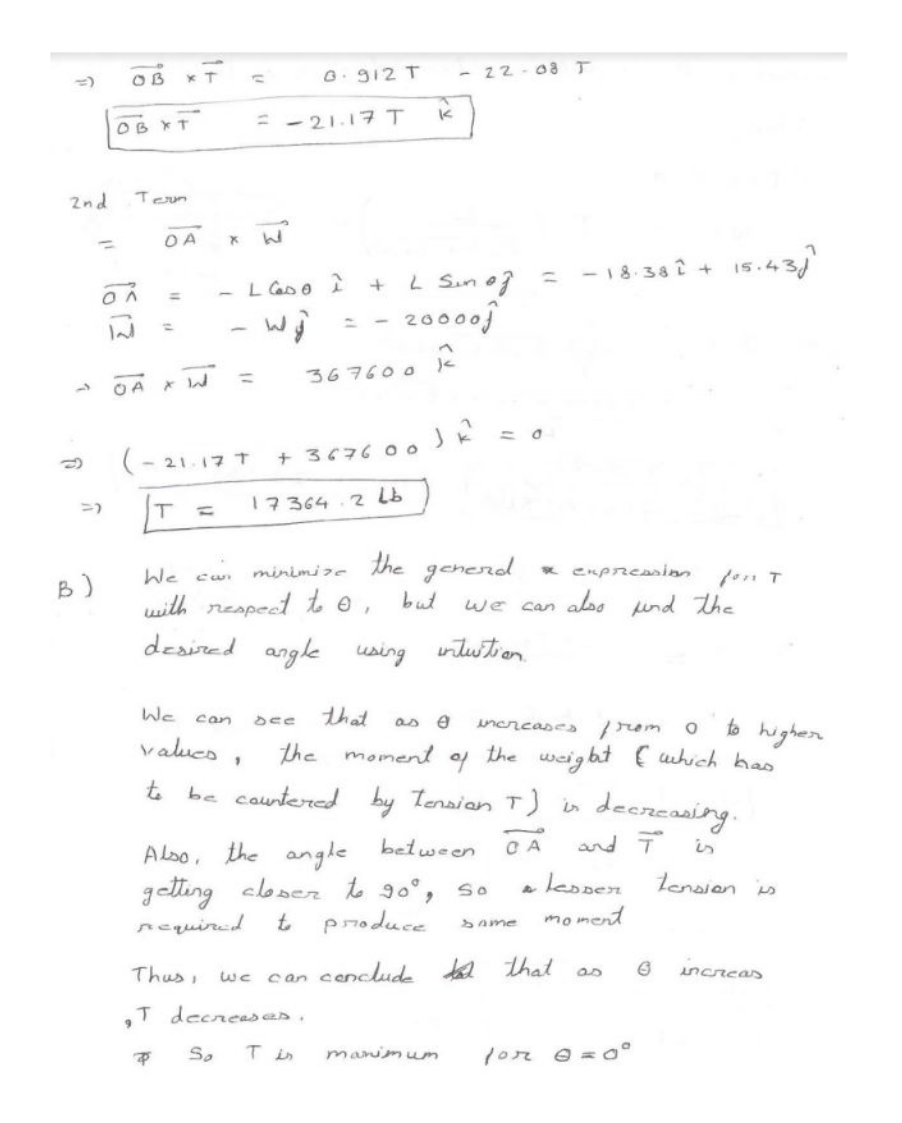 =) OB × T = 0.912 T - 22.08 T
OB × T = -21.17 T k̂
2nd Term
= OA × W
OA = - L Cos θ î + L Sin θ ĵ = - 18.38 î + 15.43 ĵ
W = - W ĵ = - 20000 ĵ
→ OA × W = 367600 k̂
=) (- 21.17 T + 367600) k̂ = 0
=) T = 17364.2 Lb
B) We can minimize the general expression for T
with respect to θ, but we can also find the
desired angle using intuition.
We can see that as θ increases from 0 to higher
values, the moment of the weight (which has
to be countered by Tension T) is decreasing.
Also, the angle between OA and T is
getting closer to 90°, so a lesser tension is
required to produce same moment
Thus, we can conclude that as θ increas
, T decreases.
So T is maximum for θ = 0°